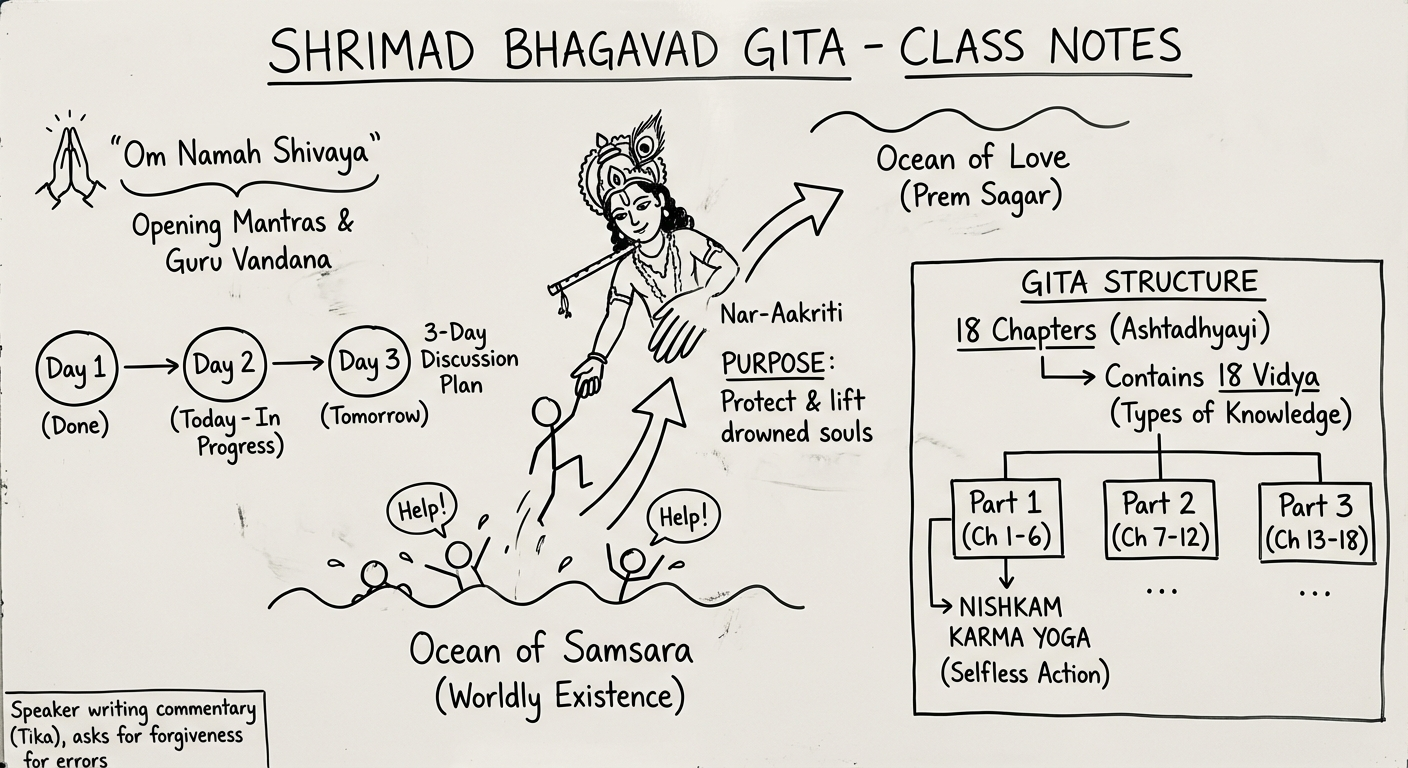 SHRIMAD BHAGAVAD GITA - CLASS NOTES
"Om Namah Shivaya"
Opening Mantras &
Guru Vandana
Day 1
(Done)
Day 2
(Today - In
Progress)
Day 3
(Tomorrow)
3-Day
Discussion
Plan
Ocean of Love
(Prem Sagar)
Nar-Aakriti
PURPOSE:
Protect & lift
drowned souls
Help!
Help!
Ocean of Samsara
(Worldly Existence)
GITA STRUCTURE
18 Chapters (Ashtadhyayi)
Contains 18 Vidya
(Types of Knowledge)
Part 1
(Ch 1-6)
Part 2
(Ch 7-12)
Part 3
(Ch 13-18)
...
...
NISHKAM
KARMA YOGA
(Selfless Action)
Speaker writing commentary
(Tika), asks for forgiveness
for errors